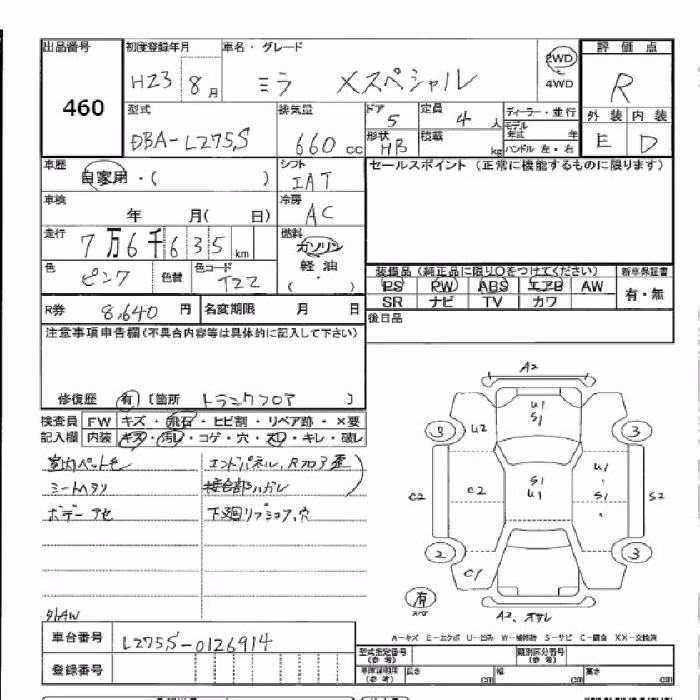 出品番号 初度登録年月 車名・グレード 評価点
460 H23 8月 ミラ Xスペシャル 2WD 4WD R
型式 排気量 ドア 定員 ディーラー・並行 外装 内装
DBA-L275S 660cc 5 4人 モデル年式 年 E D
形状 HB 積載 kg ハンドル 左・右
車歴 自家用・( ) シフト IAT セールスポイント(正常に機能するものに限ります)
車検 年 月( 日) 冷房 AC
走行 7万6千635km 燃料 ガソリン 軽油 (・)
色 ピンク 色替 色コード T22
装備品(純正品に限り〇をつけてください) 新車保証書
PS PW ABS エアB AW 有・無
SR ナビ TV カワ
R券 8,640円 名変期限 月 日 後日品
注意事項申告欄(不具合内容等は具体的に記入して下さい)
修復歴 有 (箇所 トランクフロア )
検査員 FW キズ・飛石・ヒビ割・リペア跡・×要
記入欄 内装 キズ・汚レ・コゲ・穴・スレ・キレ・破レ
室内ペット毛 エンドパネル、Rフロア歪
シートヘタリ 接合部ハガレ
ボデーアセ 下廻リフショク、穴
外AW
A2
U1 S1
3 U2 3
C2 C2 S1 U1 U1 S1 S2
2 C1 3
有 スペア A2、オサレ
A-キズ E-エクボ U-凹み W-補修跡 S-サビ C-腐食 XX-交換済
車台番号 L275S-0126914
型式指定番号(参考) 類別区分番号(参考)
登録番号 長さ cm 幅 cm 高さ cm